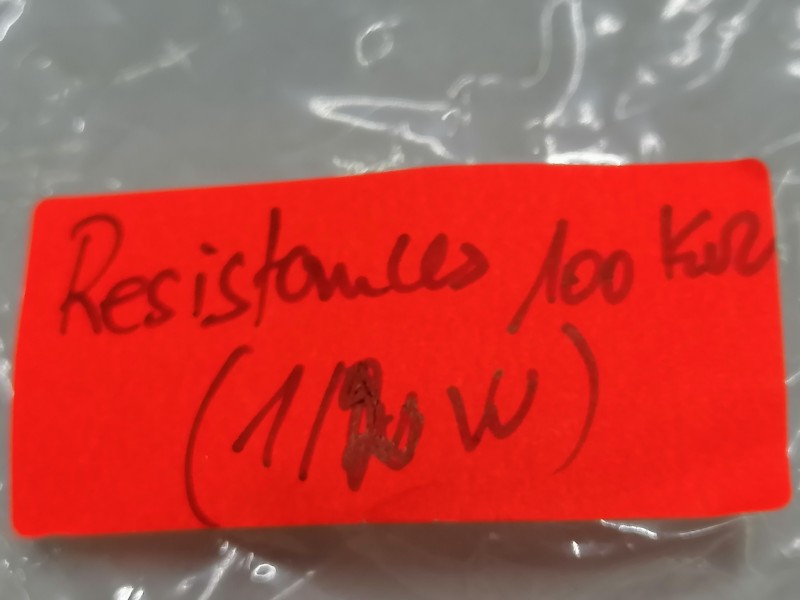 Resistances 100 KΩ
(1/ W)